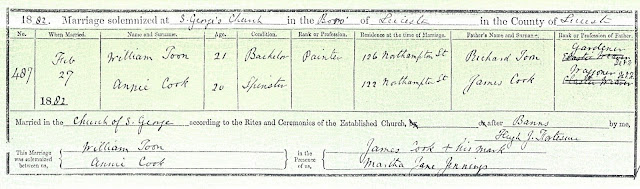 1882. Marriage solemnized at S. George's Church in the Boro' of Leicester in the County of Leicester
No. When Married. Name and Surname. Age. Condition. Rank or Profession. Residence at the time of Marriage. Father's Name and Surname. Rank or Profession of Father.
487 Feb 27 1882 William Toon 21 Bachelor Painter 126 Northampton St Richard Toon Gardener
Annie Cook 20 Spinster 122 Northampton St James Cook Waggoner
Married in the Church of S. George according to the Rites and Ceremonies of the Established Church, by or after Banns by me,
Hugh J.
This Marriage was solemnized between us, William Toon Annie Cook in the Presence of us, James Cook + his mark Martha Jane Jennings